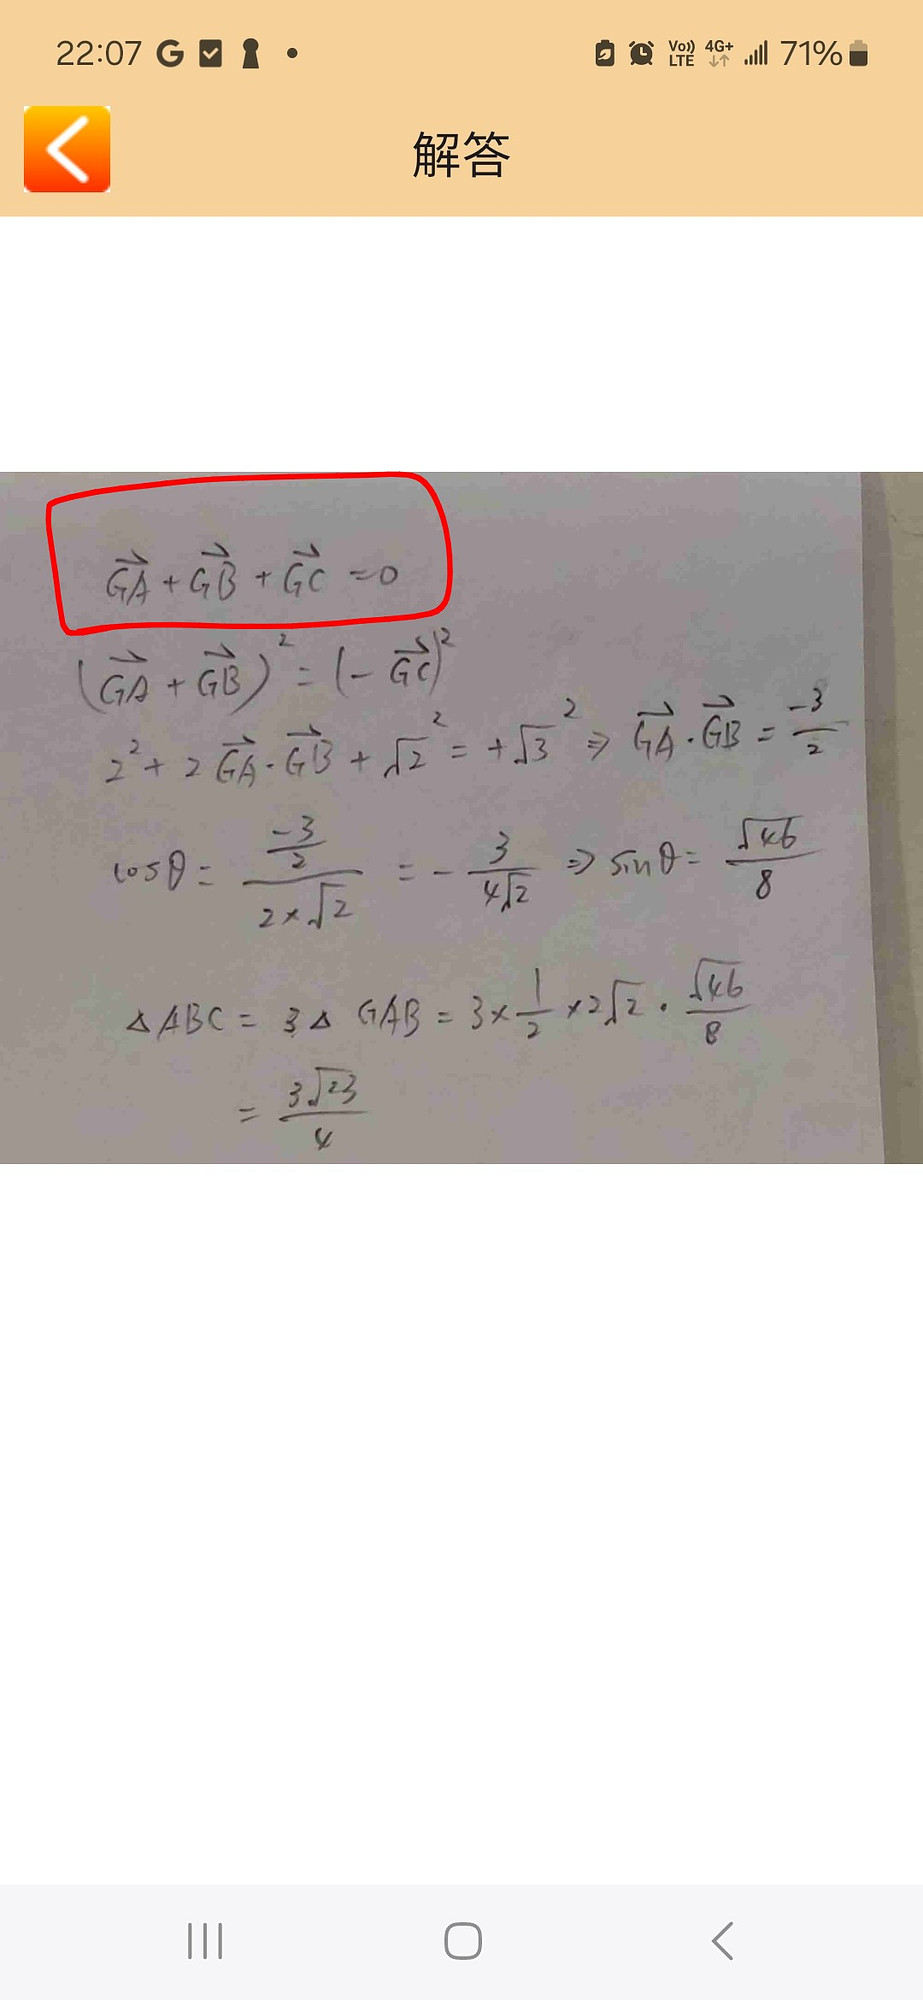 22:07 G Vo)) LTE 4G+ 71%
解答
GA + GB + GC = 0
(GA + GB)² = (- GC)²
2² + 2 GA · GB + √2² = +√3² ⇒ GA · GB = -3/2
cosθ = (-3/2)/(2×√2) = - 3/(4√2) ⇒ sinθ = √46/8
△ABC = 3△ GAB = 3×1/2×2√2 · √46/8
= 3√23/4